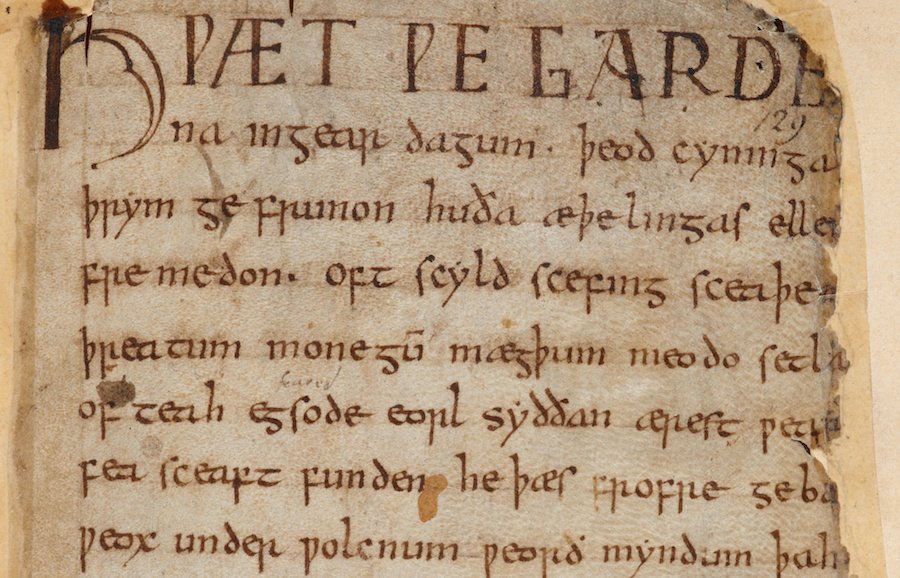 HǷÆT ǷE GARDE
na ingear dagum. þeod cyninga
129
þrym ge frunon huða æþelingas elle
fre medon. oft scyld scefing sceaþe
þreatum monegū mægþum meodo setla
of teah egsode eorl syððan ærest ƿear
fea sceaft funden he þæs frofre geba
ƿeox under ƿolcnum ƿeorð myndum þah